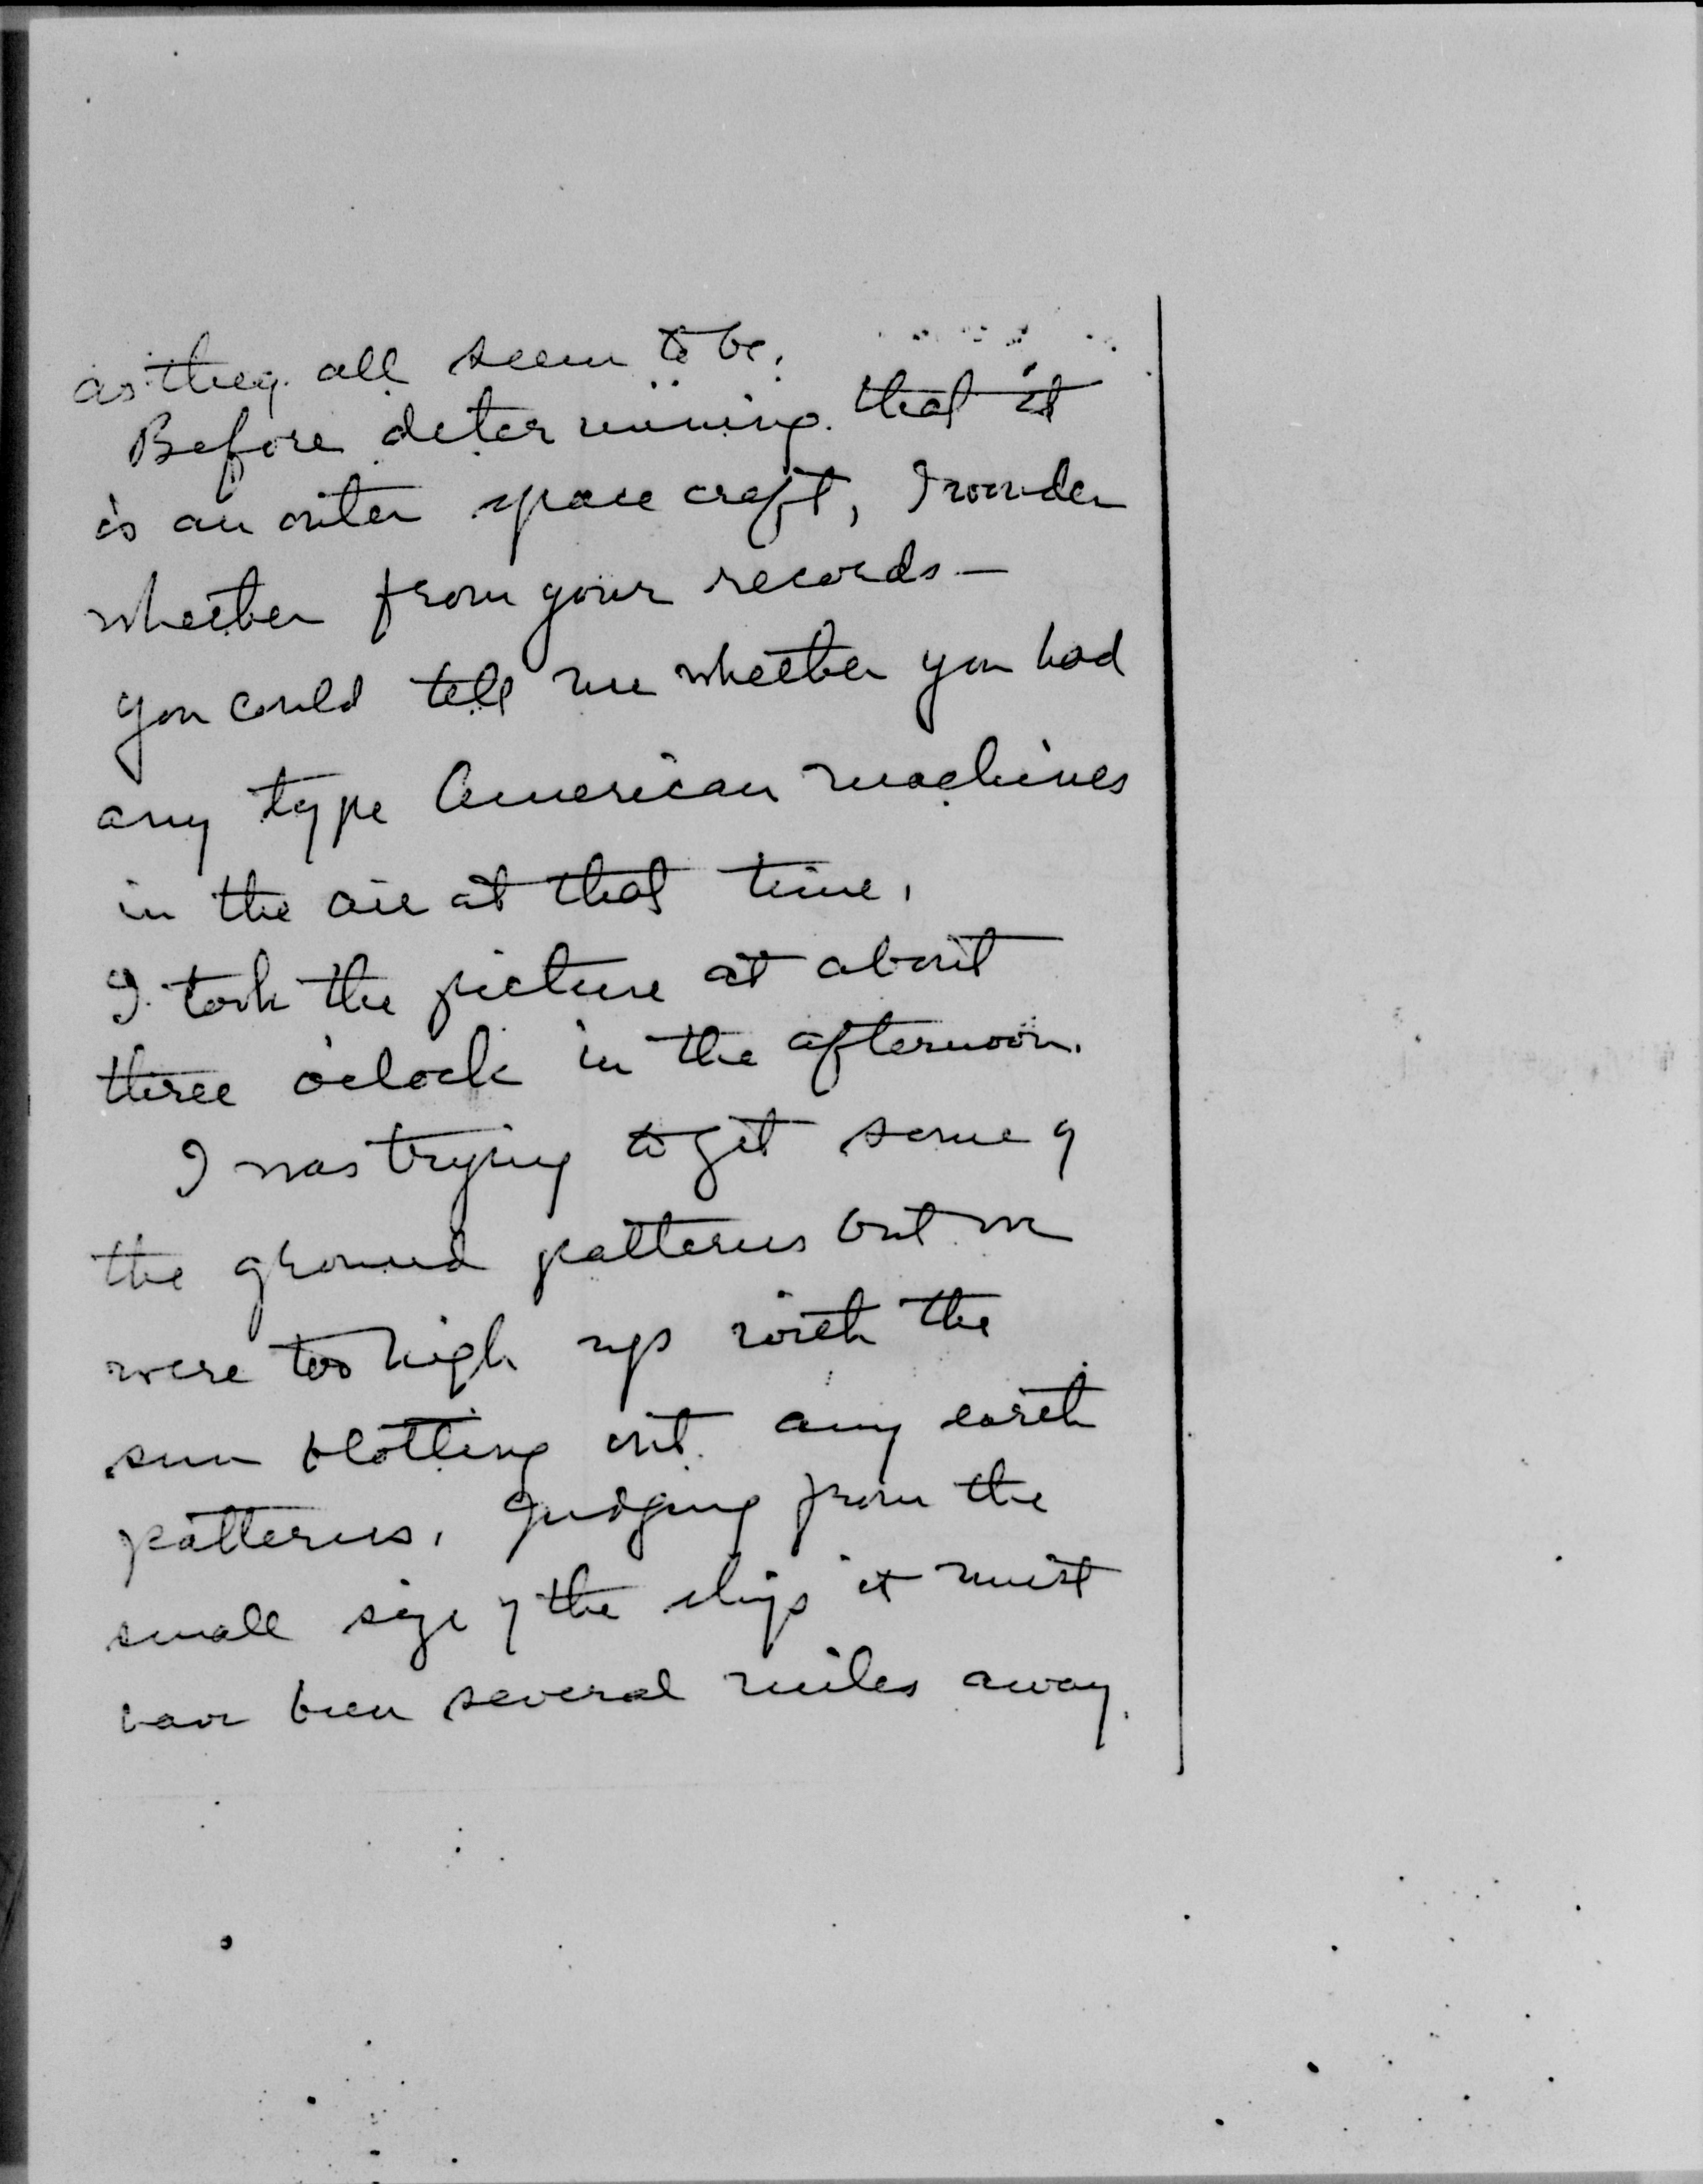 as they all seem to be.
Before determining that it
is an outer space craft, I wonder
whether from your records —
you could tell me whether you had
any type American machines
in the air at that time.
I took the picture at about
three o'clock in the afternoon.
I was trying to get some of
the ground patterns but we
were too high up with the
sun blotting out any earth
patterns. Judging from the
small size of the ships it must
have been several miles away.